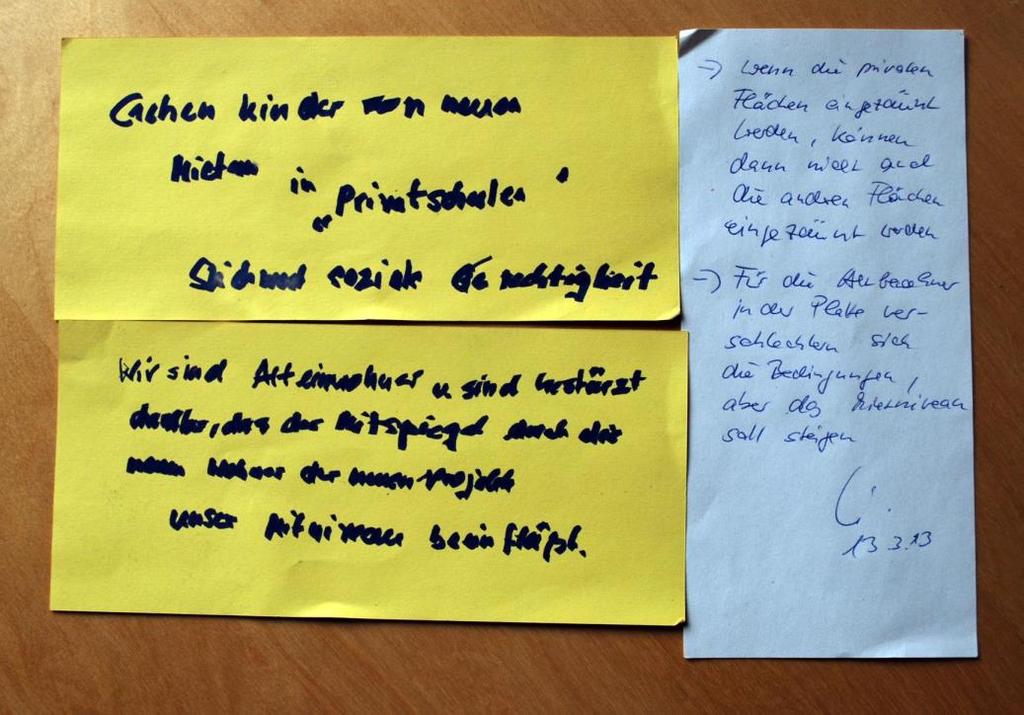 Gehen kinder von neuen
Mietern in
„Privatschulen"
Stichwort soziale Gerechtigkeit
Wir sind Alteinwohner u sind bestürzt
darüber, das der Mitspiegel durch die
neuen Wohner der neuen Projekte
unser Mitniveau beeinflüßt.
→ Wenn die privaten
Flächen eingezäunt
werden, können
dann nicht auch
die anderen Flächen
eingezäunt werden
→ Für die Altbewohner
in der Platte ver-
schlechtern sich
die Bedingungen,
aber das Mietniveau
soll steigen
13.3.13